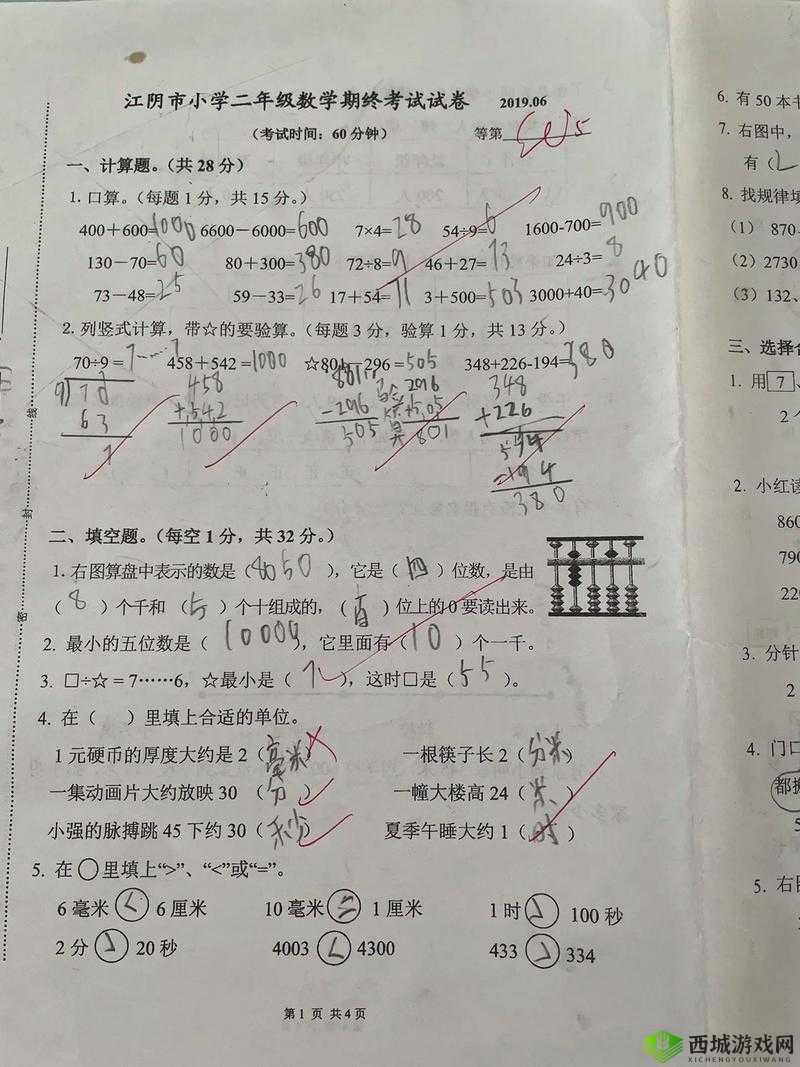 江阴市小学二年级数学期终考试试卷 2019.06
（考试时间：60分钟） 等第
一、计算题。（共28分）
1. 口算。（每题1分，共15分。）
400＋600=1000 6600－6000=600 7×4=28 54÷9=6 1600-700=900
130－70=60 80＋300=380 72÷8=9 46＋27= 24÷3=8
73－48=25 59－33=26 17＋54= 3＋500=503 3000+40=3040
2. 列竖式计算，带☆的要验算。（每题3分，验算1分，共13分。）
70÷9＝7……7 458＋542＝1000 ☆801－296＝505 348+226-194=380
二、填空题。（每空1分，共32分。）
1. 右图算盘中表示的数是（8050），它是（四）位数，是由
（8）个千和（5）个十组成的，（百）位上的0要读出来。
2. 最小的五位数是（10000），它里面有（10）个一千。
3. □÷☆＝7……6，☆最小是（7），这时□是（55）。
4. 在（ ）里填上合适的单位。
1元硬币的厚度大约是2（毫米） 一根筷子长2（分米）
一集动画片大约放映30（分） 一幢大楼高24（米）
小强的脉搏跳45下约30（秒） 夏季午睡大约1（时）
5. 在○里填上“>”、“<”或“=”。
6毫米<6厘米 10毫米=1厘米 1时>100秒
2分>20秒 4003<4300 433>334
第1页 共4页
6. 有50本
7. 右图中，
有（
8. 找规律填
（1） 870
（2）2730
（3）132、
三、选择
1. 用7、
2个
2. 小红读
860
790
220
3. 分针
2
4. 门口
都
5
5. 右图
西城游戏网
XICHENGYOUXIWANG